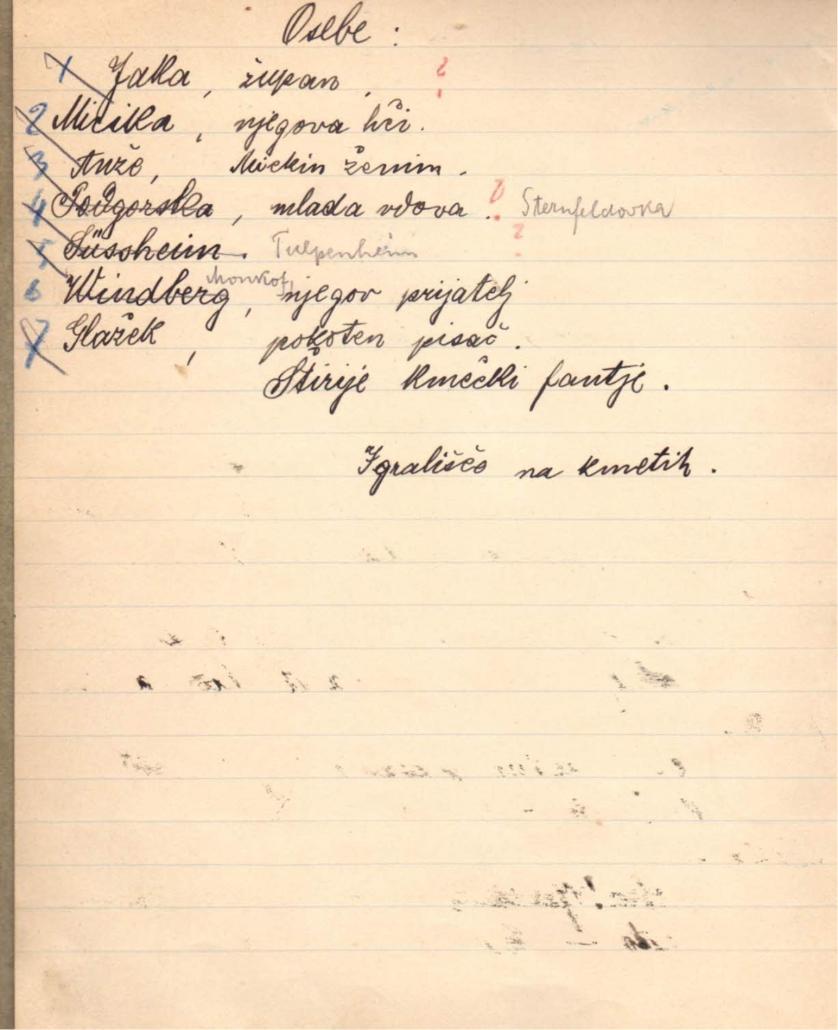 Osebe :
1 Jaka, župan, ?
2 Micika, njegova hči.
3 Anže, Mickin ženin.
4 Podgorska, mlada vdova. ? Sternfeldovka
5 Süssheim. Tulpenheim ?
6 Windberg, Monkof, njegov prijatelj
7 Glažek, pokoten pisač.
Štirije kmečki fantje.
Igrališčo na kmetih.